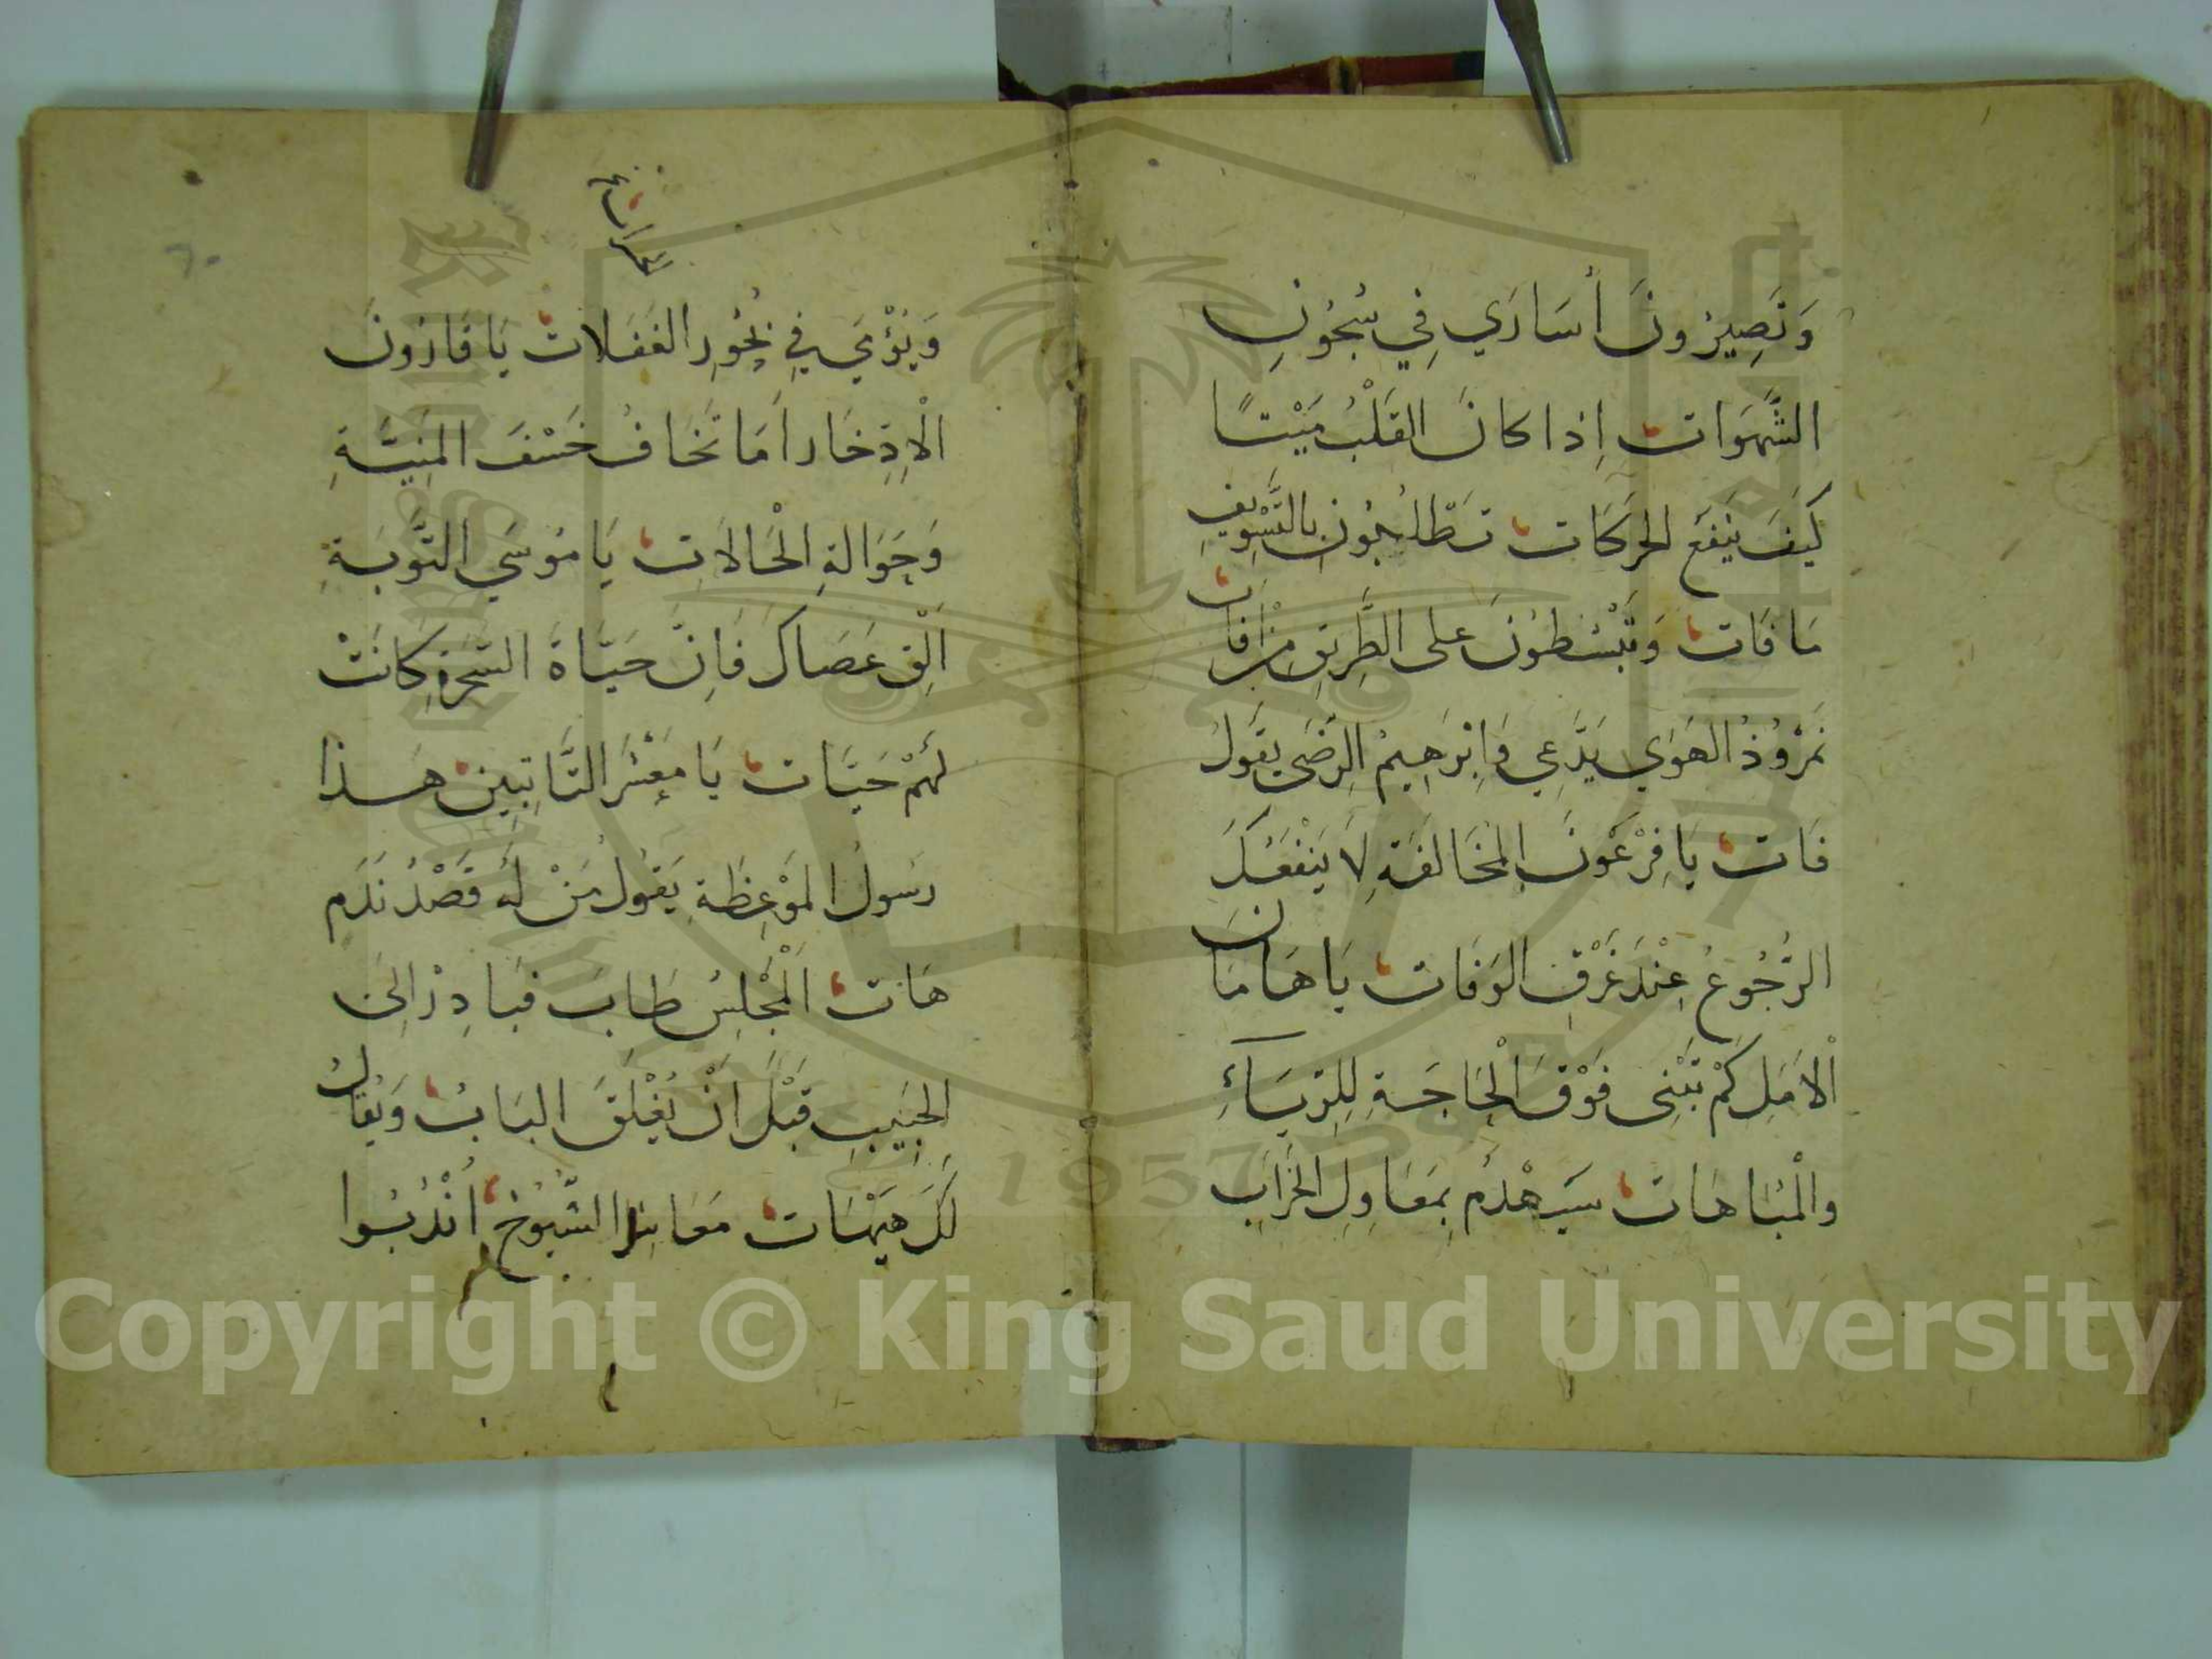 وَتَصِيرُونَ أُسَارَي فِي سُجُونِ
الشَّهَوَات إِذا كانَ القَلْبُ مَيْتًا
كَيفَ يَنفَع الحَركَات تَطْلُبُونَ بالتَّسْوِيفِ
مَا فَات وَتَبْسُطُونَ على الطَّرِيقِ مِنْ اٰفات
نَمْرُوذُ الهَوَي يَدَّعِي وَاِبْرَهِيمُ الرِّضَى يَقُولُ
فَات يَا فِرْعَوْنَ المُخَالَفَةِ لاَ يَنْفَعُكَ
الرُّجُوعُ عِنْدَ غَرْقِ الوَفَات يَا هَامَانَ
الْاَمَلِ كَمْ تَبْنِى فَوْقَ الْحَاجَةِ لِلرِّيَآءِ
والْمُبَاهَات سَيَهْدَمُ بِمَعَاوِلِ الخَرَابِ
وَيُرْمَي فِي بُحُورِ الغَفَلات يَا قَارُونَ
الْاِدِّخَار اَمَا تَخَافُ خَسْفَ المَنِيَّةِ
وَحَوَالةِ الْحَالاَتِ يَا مُوسَي التَّوبَةِ
اَلْقِ عَصَاكَ فَاِنَّ حَيَّاةَ السَّحَرَةِ كَانَتْ
لَهُمْ حَيَّات يَا مَعْشَرَ التَّائِبِين هَذا
رَسُولُ المَوْعِظَةِ يَقُولُ مَنْ لَهُ قَصْدُ نَدَمٍ
هَات اَلْمَجْلِسُ طَابَ فَبَادِرْ اِلَى
الحَبِيبِ قَبْلَ اَنْ يُغْلَقَ البَابُ وَيُقَالُ
لَكَ هَيْهَات مَعَاشِرَ الشُّيُوخ اُنْدُبُوا
Copyright © King Saud University
1957